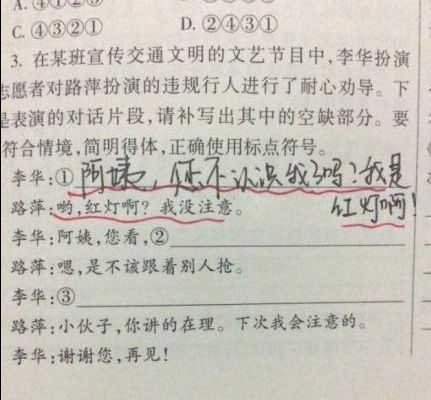 C. ④③②① D. ②④③①
3. 在某班宣传交通文明的文艺节目中,李华扮演
志愿者对路萍扮演的违规行人进行了耐心劝导。下
是表演的对话片段,请补写出其中的空缺部分。要
符合情境,简明得体,正确使用标点符号。
李华:①阿姨,您不认识我了吗?我是
红灯啊!
路萍:哟,红灯啊?我没注意。
李华:阿姨,您看,②
路萍:嗯,是不该跟着别人抢。
李华:③
路萍:小伙子,你讲的在理。下次我会注意的。
李华:谢谢您,再见!